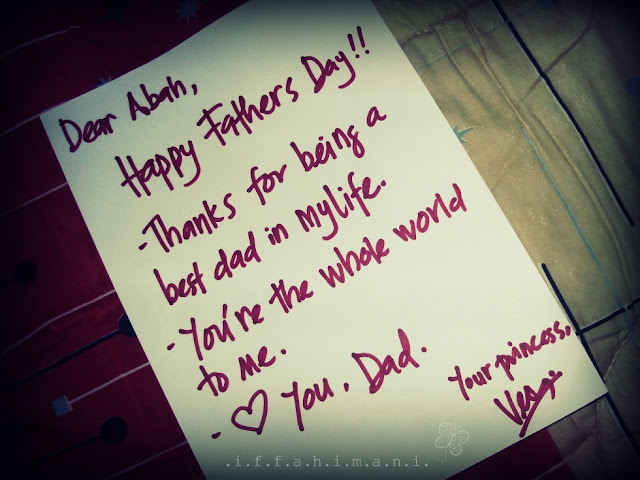 Dear Abah,
Happy Fathers Day!!
- Thanks for being a
best dad in my life.
- You're the whole world
to me.
- ♡ You, Dad.
Your princess,
.i.f.f.a.h.i.m.a.n.i.